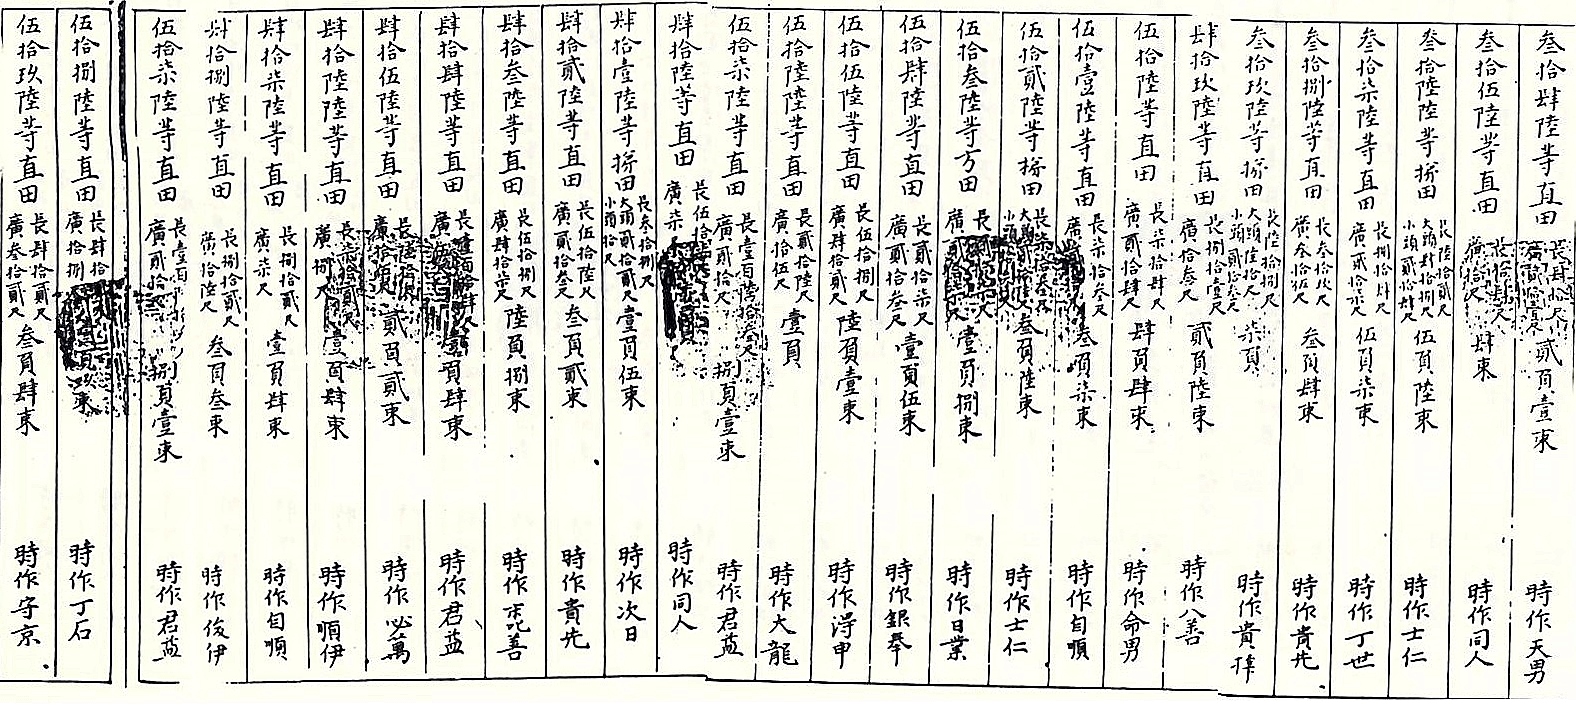 叁拾肆陸等直田 長肆拾尺 廣貳拾壹尺 貳負壹束 時作天男
叁拾伍陸等直田 肆束 時作同人
叁拾陸陸等梯田 長陸拾貳尺 大頭肆拾捌尺 小頭貳拾肆尺 伍負陸束 時作士仁
叁拾柒陸等直田 長捌拾肆尺 廣貳拾柒尺 伍負柒束 時作丁世
叁拾捌陸等直田 長叁拾玖尺 廣叁拾伍尺 叁負肆束 時作貴先
叁拾玖陸等梯田 長陸拾捌尺 大頭陸拾尺 小頭貳拾叁尺 柒負 時作貴
肆拾玖陸等直田 長捌拾壹尺 廣拾叁尺 貳負陸束 時作八善
伍拾陸等直田 長柒拾肆尺 廣貳拾肆尺 肆負肆束 時作命男
伍拾壹陸等直田 長柒拾叁尺 廣貳拾尺 叁負柒束 時作自順
伍拾貳陸等梯田 長柒拾叁尺 大頭貳拾陸尺 小頭 叁負陸束 時作士仁
伍拾叁陸等方田 長廣貳拾柒尺 壹負捌束 時作日業
伍拾肆陸等直田 長貳拾柒尺 廣貳拾叁尺 壹負伍束 時作銀奉
伍拾伍陸等直田 長伍拾捌尺 廣肆拾貳尺 陸負壹束 時作淂申
伍拾陸陸等直田 長貳拾陸尺 廣拾伍尺 壹負 時作大龍
伍拾柒陸等直田 長壹百拾叁尺 廣貳拾 捌負壹束 時作君益
肆拾陸等直田 長伍拾 廣柒 時作同人
肆拾壹陸等梯田 長叁拾捌尺 大頭貳拾貳尺 小頭拾尺 壹負伍束 時作次日
肆拾貳陸等直田 長伍拾陸尺 廣貳拾叁尺 叁負貳束 時作貴先
肆拾叁陸等直田 長伍拾捌尺 廣肆拾柒尺 陸負捌束 時作善
肆拾肆陸等直田 長 廣 壹負肆束 時作君益
肆拾伍陸等直田 長陸拾 廣拾 貳負貳束 時作必萬
肆拾陸陸等直田 長柒拾貳尺 廣捌尺 壹負肆束 時作順伊
肆拾柒陸等直田 長捌拾貳尺 廣柒尺 壹負肆束 時作自順
肆拾捌陸等直田 長捌拾貳尺 廣拾陸尺 叁負叁束 時作俊伊
伍拾柒陸等直田 長壹百 廣貳拾 捌負壹束 時作君益
伍拾捌陸等直田 長肆拾 廣拾捌 壹負玖束 時作丁石
伍拾玖陸等直田 長肆拾貳尺 廣叁拾貳尺 叁負肆束 時作守京